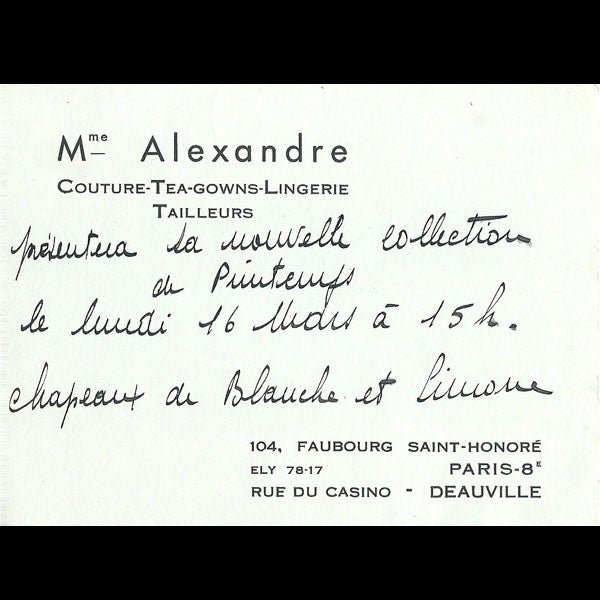 Mme Alexandre
COUTURE-TEA-GOWNS-LINGERIE
TAILLEURS
présentera sa nouvelle collection
de Printemps
le lundi 16 Mars à 15h.
chapeaux de Blanche et Simone
104, FAUBOURG SAINT-HONORÉ
ELY 78-17 PARIS-8E
RUE DU CASINO - DEAUVILLE